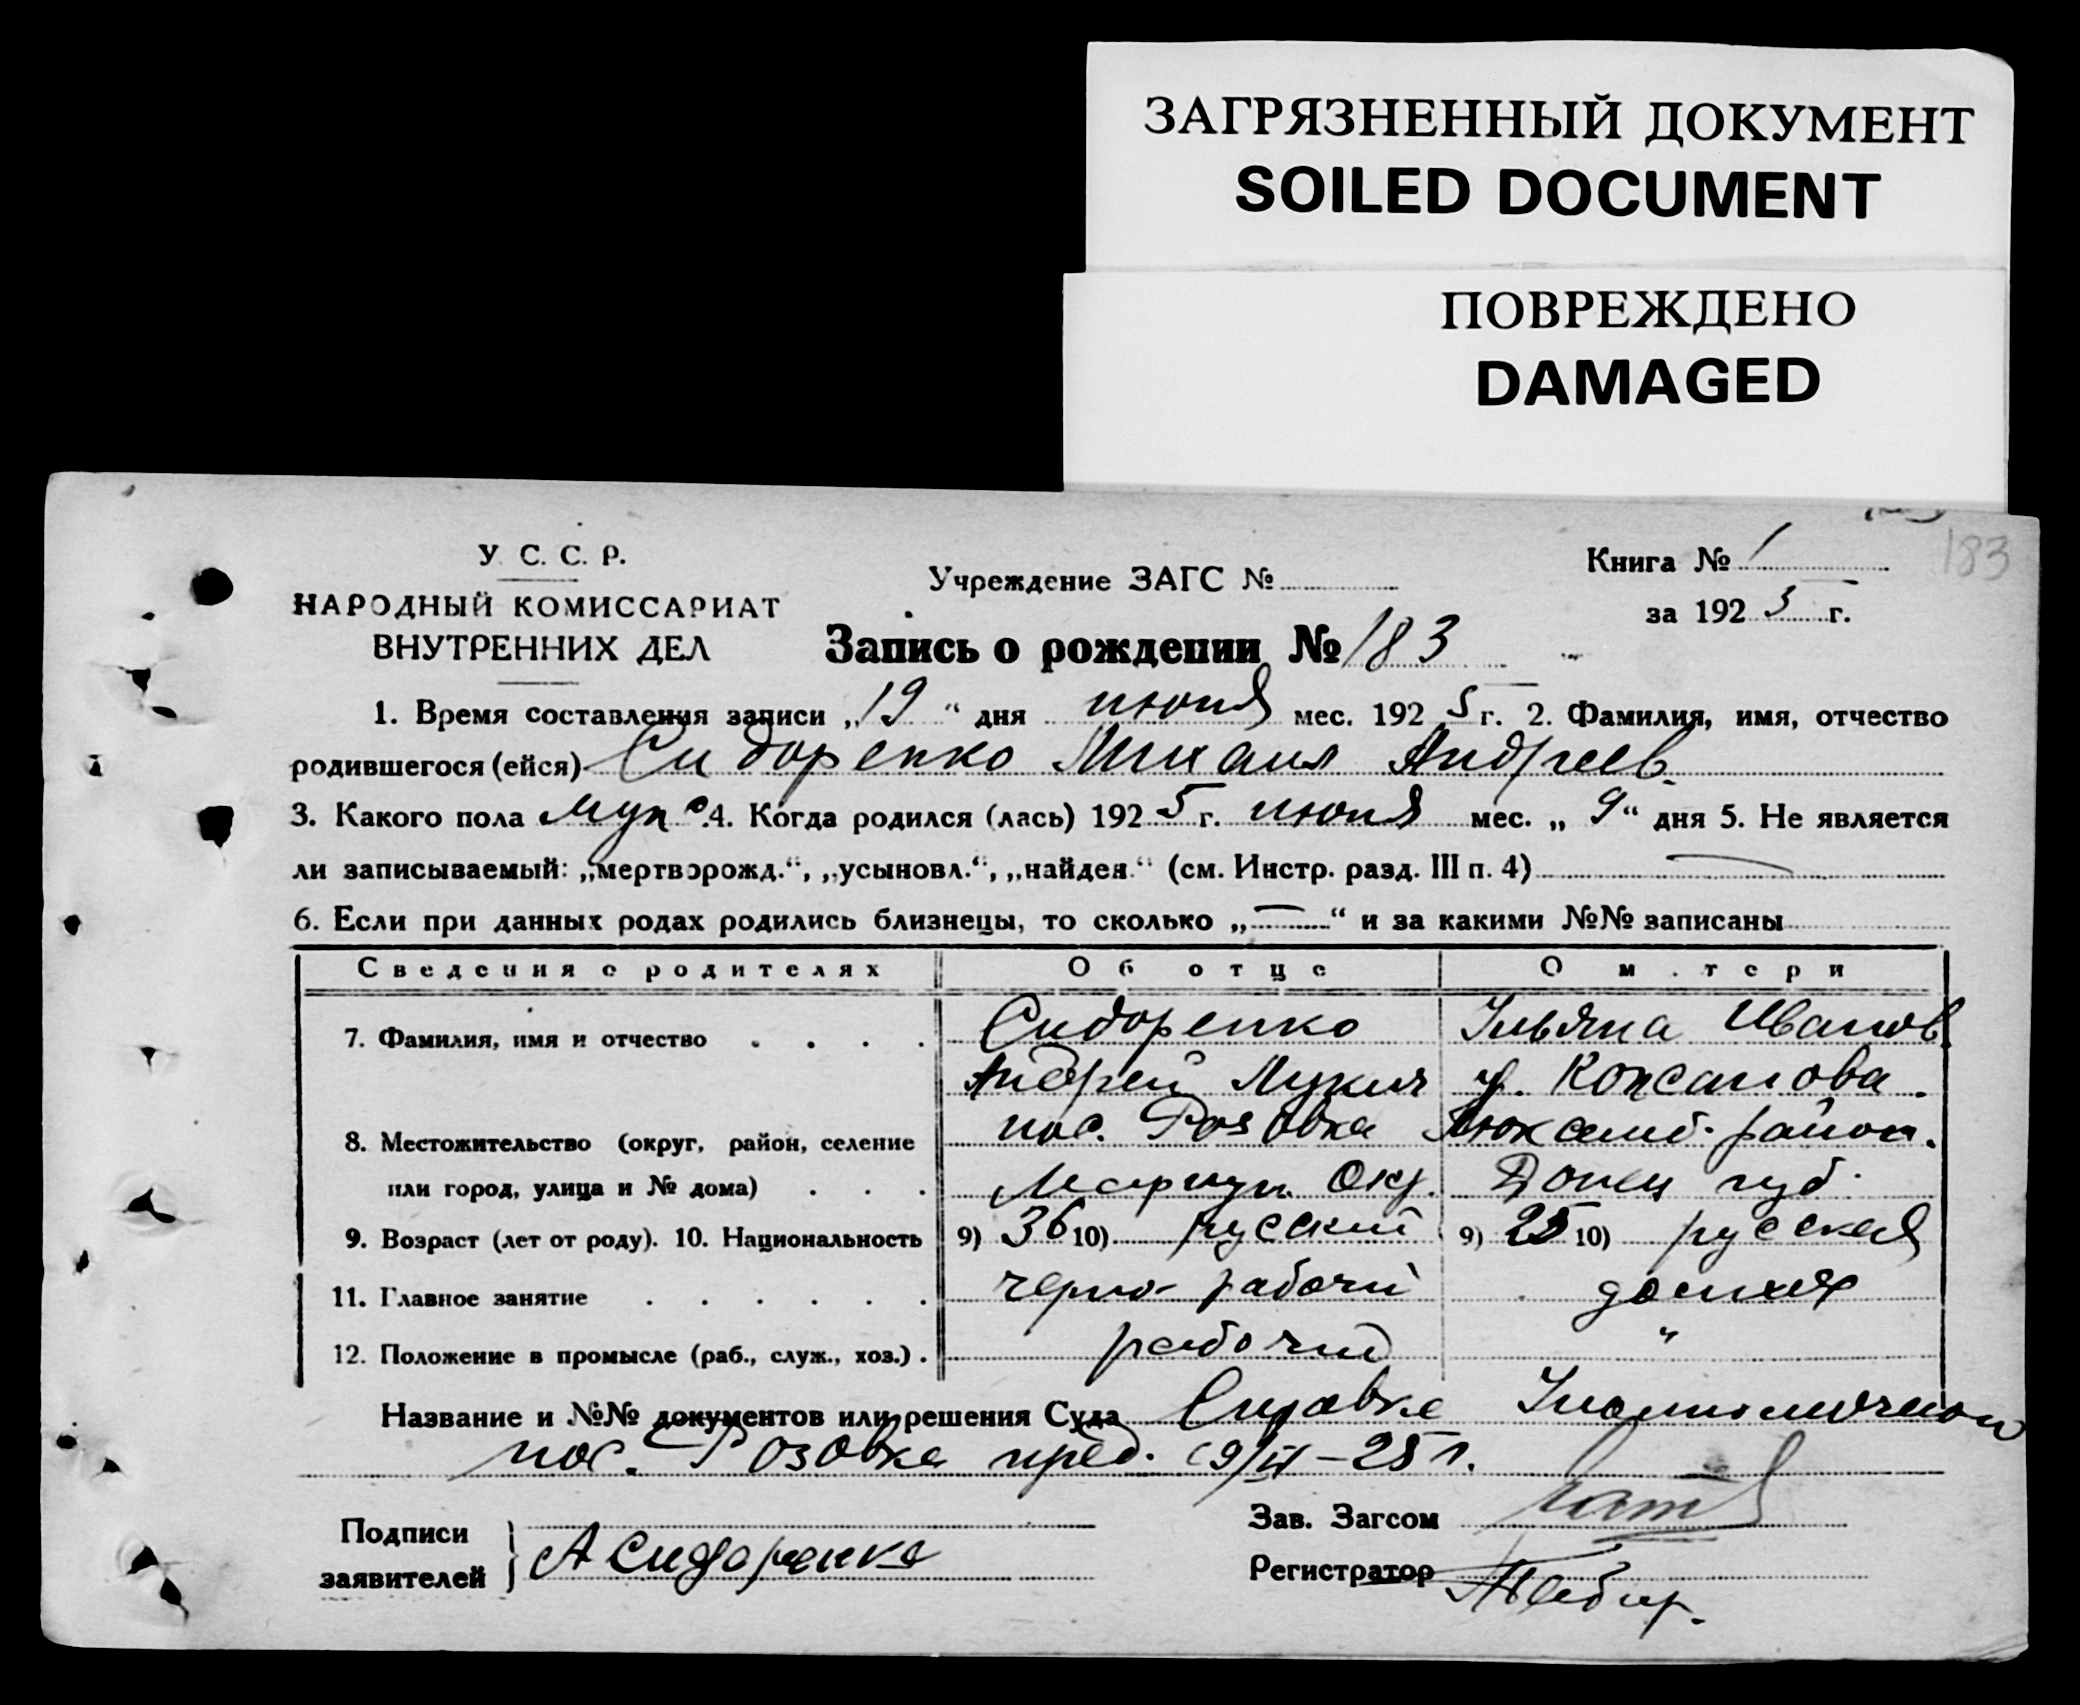 ЗАГРЯЗНЕННЫЙ ДОКУМЕНТ
SOILED DOCUMENT
ПОВРЕЖДЕНО
DAMAGED
183
У. С. С. Р.
НАРОДНЫЙ КОМИССАРИАТ
ВНУТРЕННИХ ДЕЛ
Учреждение ЗАГС №
Книга № 1
за 1925 г.
Запись о рождении № 183
1. Время составления записи „19“ дня июня мес. 1925 г. 2. Фамилия, имя, отчество
родившегося (ейся) Сидоренко Михаил Андреев.
3. Какого пола муж. 4. Когда родился (лась) 1925 г. июня мес. „9“ дня 5. Не является
ли записываемый: „мертворожд.“, „усыновл.“, „найден.“ (см. Инстр. разд. III п. 4) —
6. Если при данных родах родились близнецы, то сколько „—“ и за какими №№ записаны
Сведения о родителях Об отце О матери
7. Фамилия, имя и отчество Сидоренко Ульяна Иванов
Андрей Лукич у. Коксанова
8. Местожительство (округ, район, селение пос. Розовка Люксемб. район.
или город, улица и № дома) Мариуп. Окр. Донец губ.
9. Возраст (лет от роду). 10. Национальность 9) 36 10) русский 9) 25 10) русская
11. Главное занятие черно-рабочий домхоз
12. Положение в промысле (раб., служ., хоз.) рабочий "
Название и №№ документов или решения Суда Справка Уполномоченого
пос. Розовка пред. 19/VI-25 г.
Подписи
заявителей А Сидоренко
Зав. Загсом
Регистратор